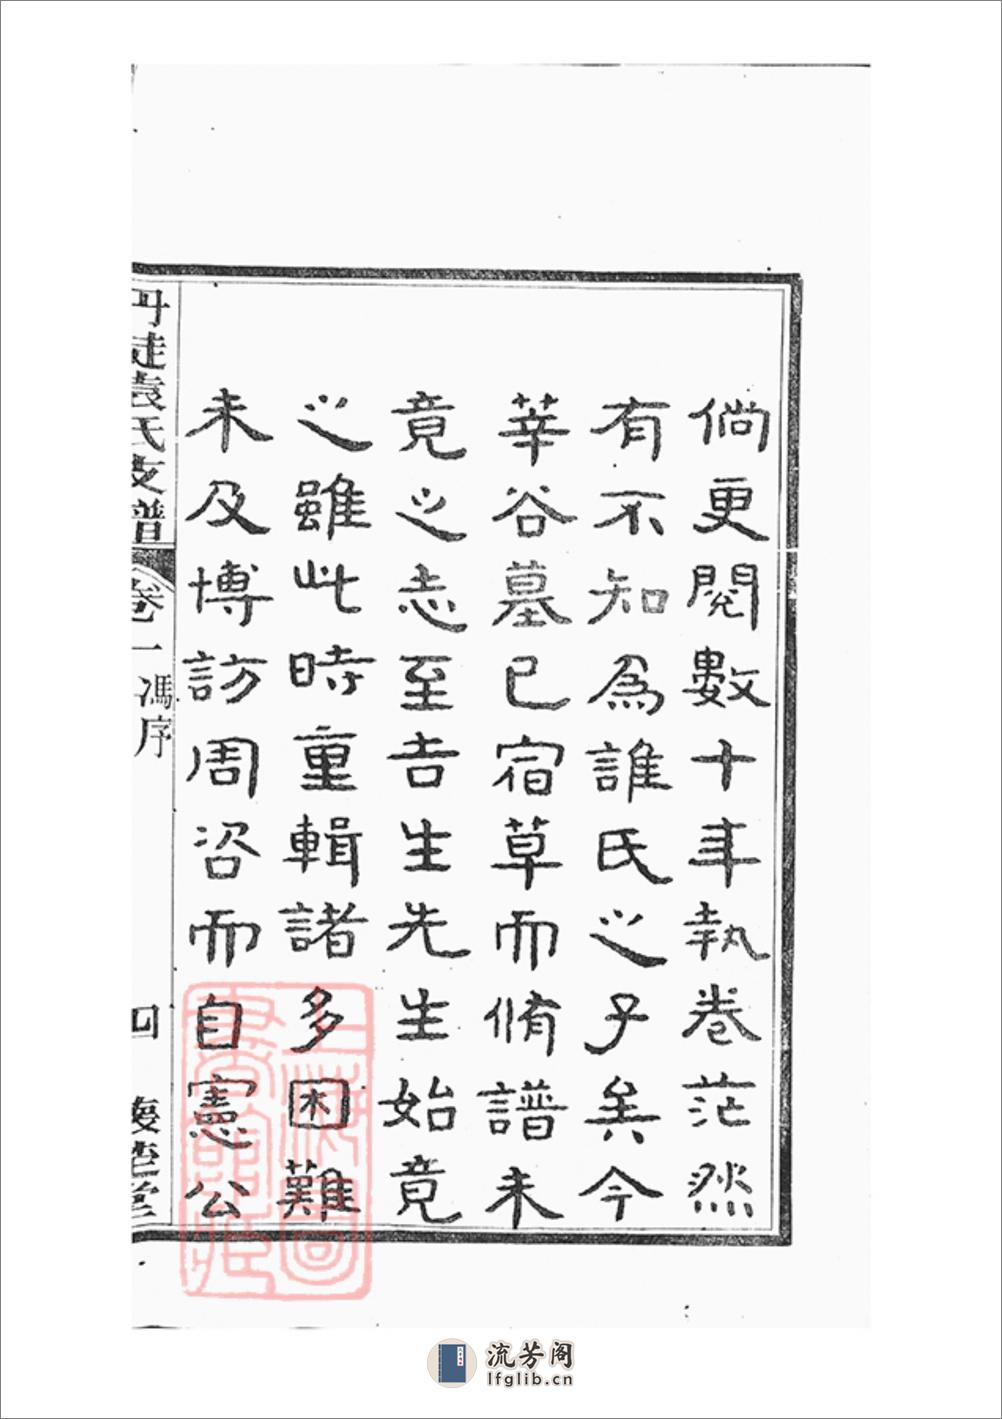 倘更閱數十年執卷茫然
有不知為誰氏之子矣今
莘谷墓已宿草而脩譜未
竟之志至吉生先生始竟
之雖此時重輯諸多困難
未及博訪周咨而自憲公
丹徒袁氏支譜
卷一
馮序
四
上海圖書館藏
流芳阁
lfglib.cn